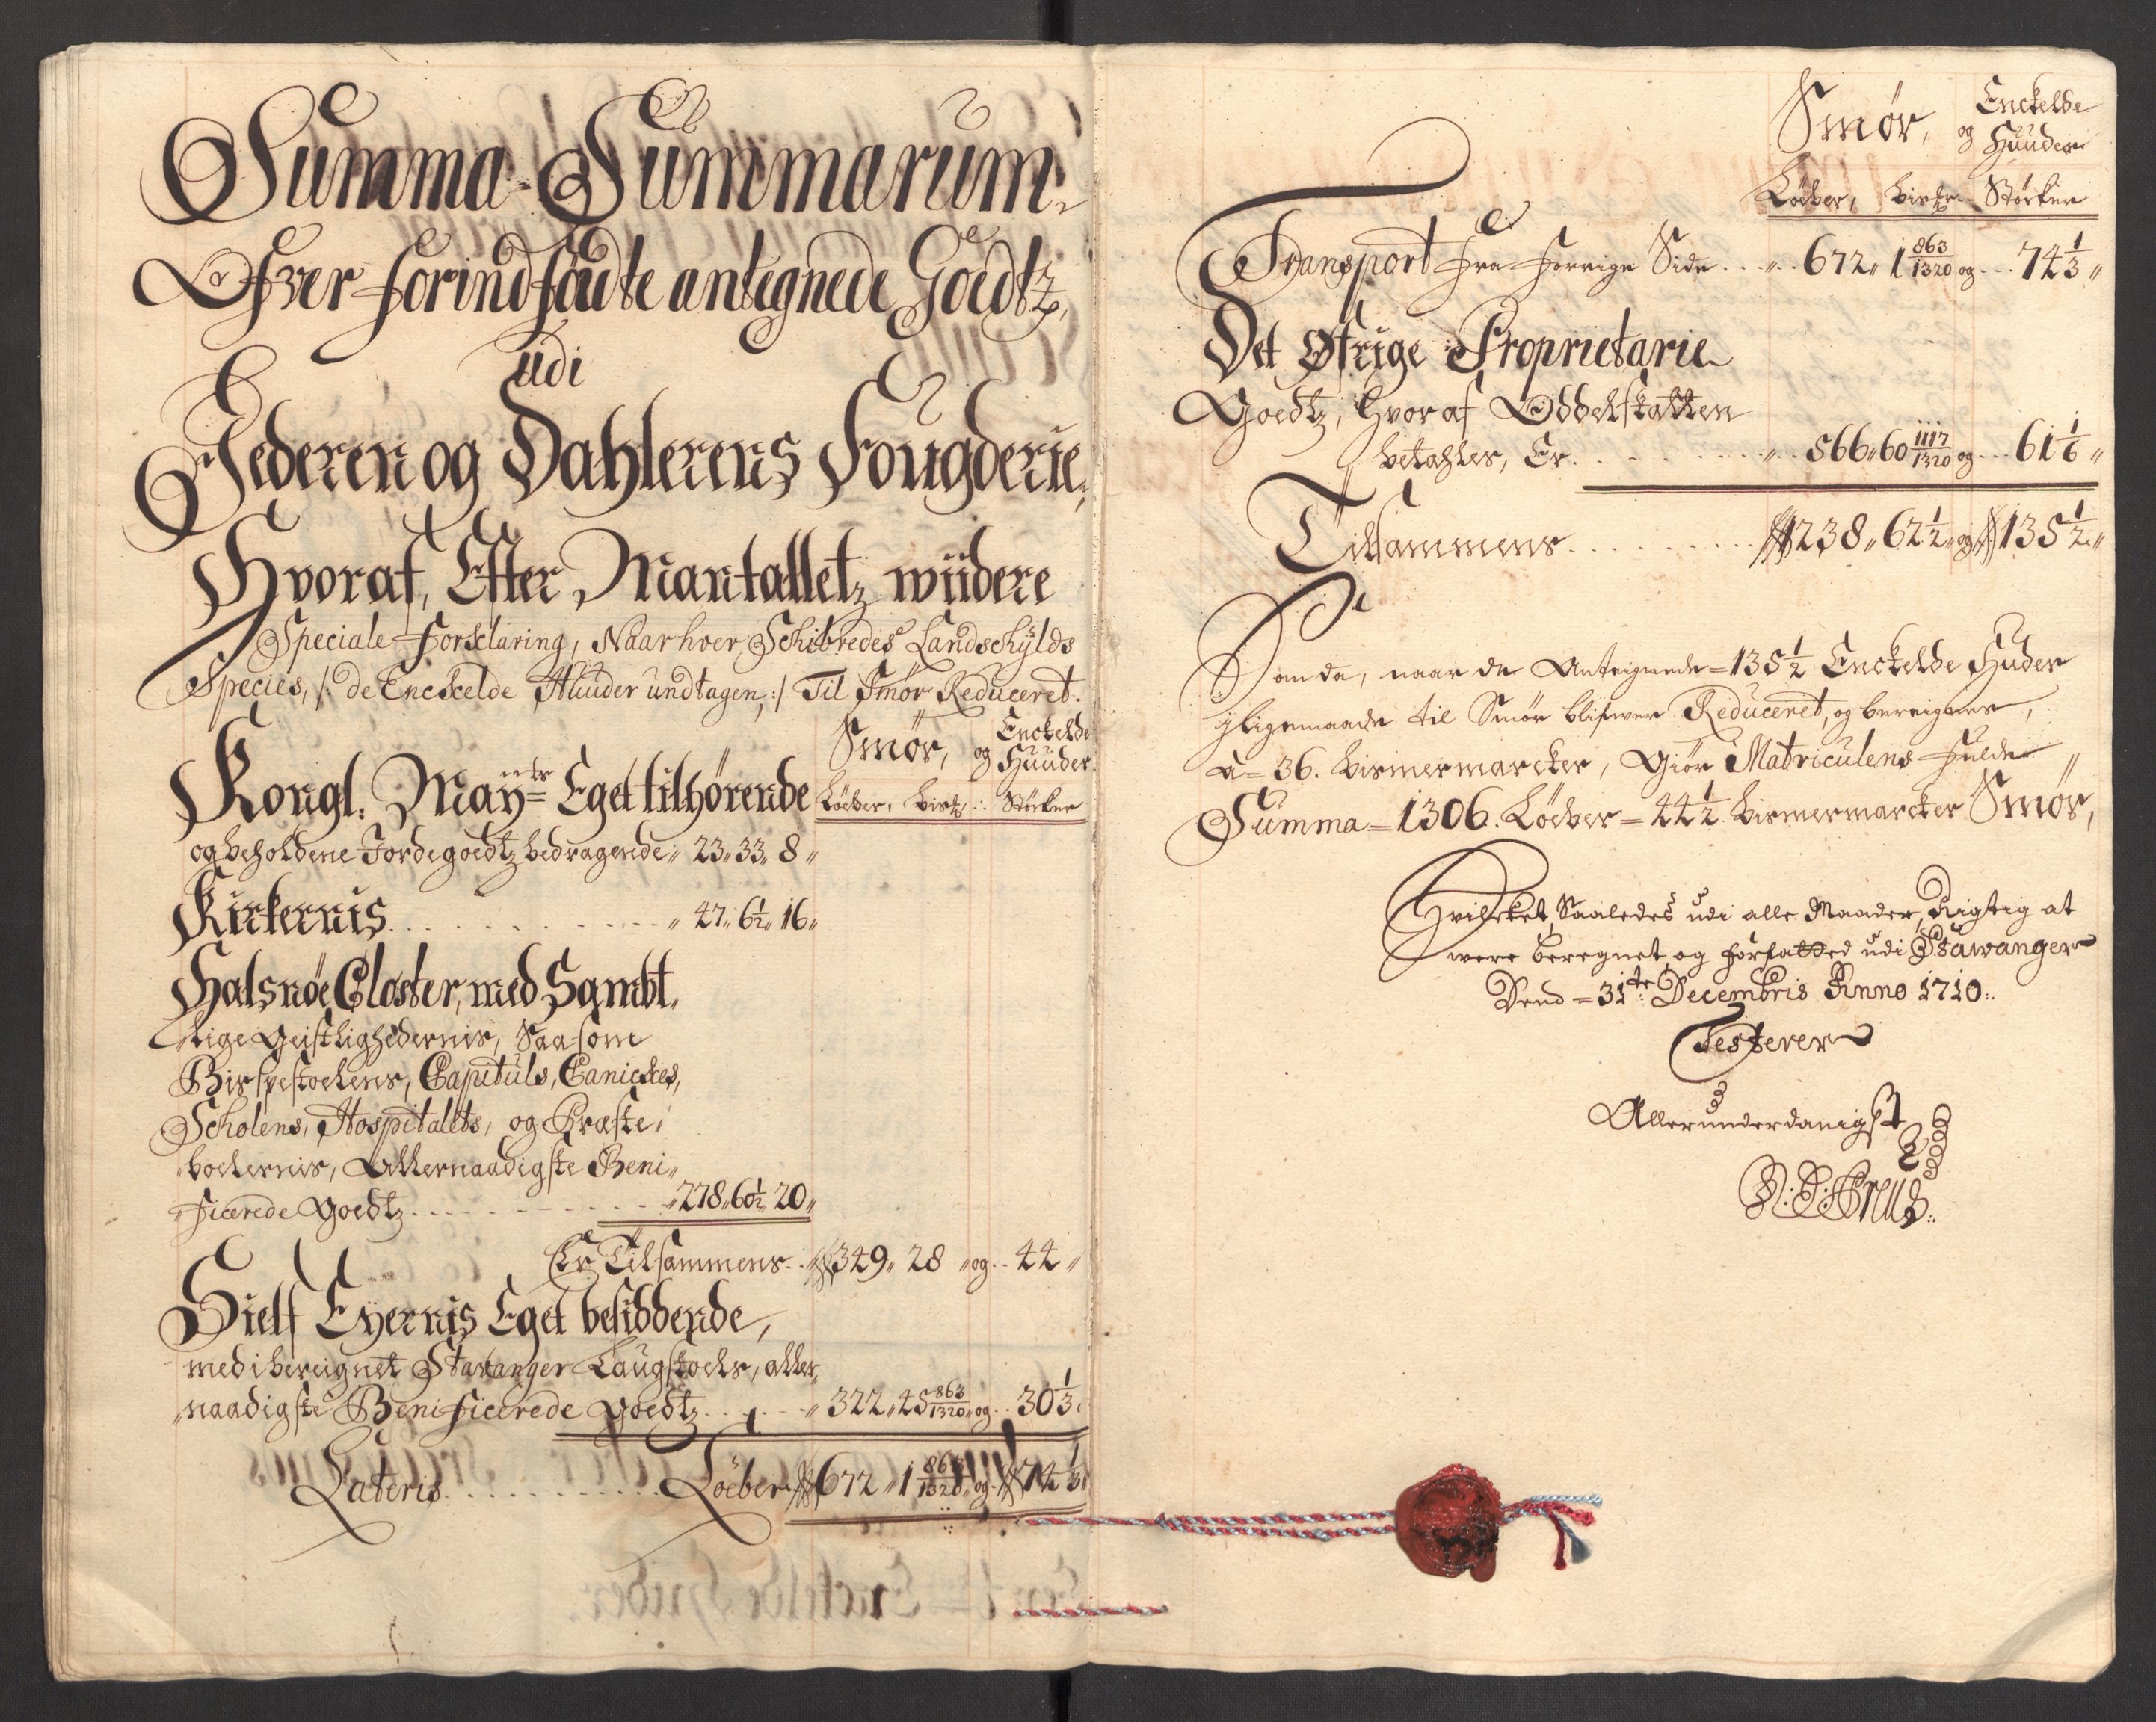 Summa Summarum
Ofver forindførdte antegnede Goedtz,
udi
Jederen og Dahlerens Fougderie,
Hvoraf, Efter Mantalletz wiidere
Speciale Forklaring, Naar hver Schibredes Landschÿlds
Species, /: de Enckelde Huuder undtagen, :/ Til Smør Reduceret.
Smør, og Enckelde Huuder
Kongl. Maÿtz Eget tilhørende Løeber, Bismr. Støcker
og beholdene Jordegoedtz bedragende 23. 33. 8
Kirkernis 47. 6½. 16
Halsnøe Closter, med Sambt-
lige Geistlighedernis, Saasom
Bispestoelens, Capituls, Canickes,
Scholens, Hospitalets, og Præste-
boelernis, Allernaadigste Beni-
ficerede Goedtz 278. 60½. 20
Er Tilsammens 349. 28 og 44
Sielf Eÿernis Eget besiddende,
med ibereignet Stavanger Laugstoels, aller-
naadigste Benificerede Goedtz 322. 45 863/1320 og 30⅓
Lateris Løeber 672. 1 863/1320 og 74⅓
Smør, og Enckelde Huuder
Løeber, Bismr. Støcker
Transport fra forrige Side 672. 1 863/1320 og 74⅓
Det Øfrige Proprietarie
Goedtz, hvoraf Oddelskatten
betahles, Er 566. 60 1117/1320 og 61⅙
Tilsammens 1238. 62½ og 135½
Saa da, naar de Anteignede 135½ Enckelde Huder
iligemaade til Smør blifwer Reduceret, og bereignes,
a 36. Bismermarcker, Giør Matriculens fulde
Summa 1306. Løeber 44½ Bismermarcker Smør,
Hvilcket Saaledes udi alle Maader, Rigtig at
were beregnet og forfatted udi Stawanger
Dend 31te Decembris Anno 1710.
Testerer
Allerunderdanigst